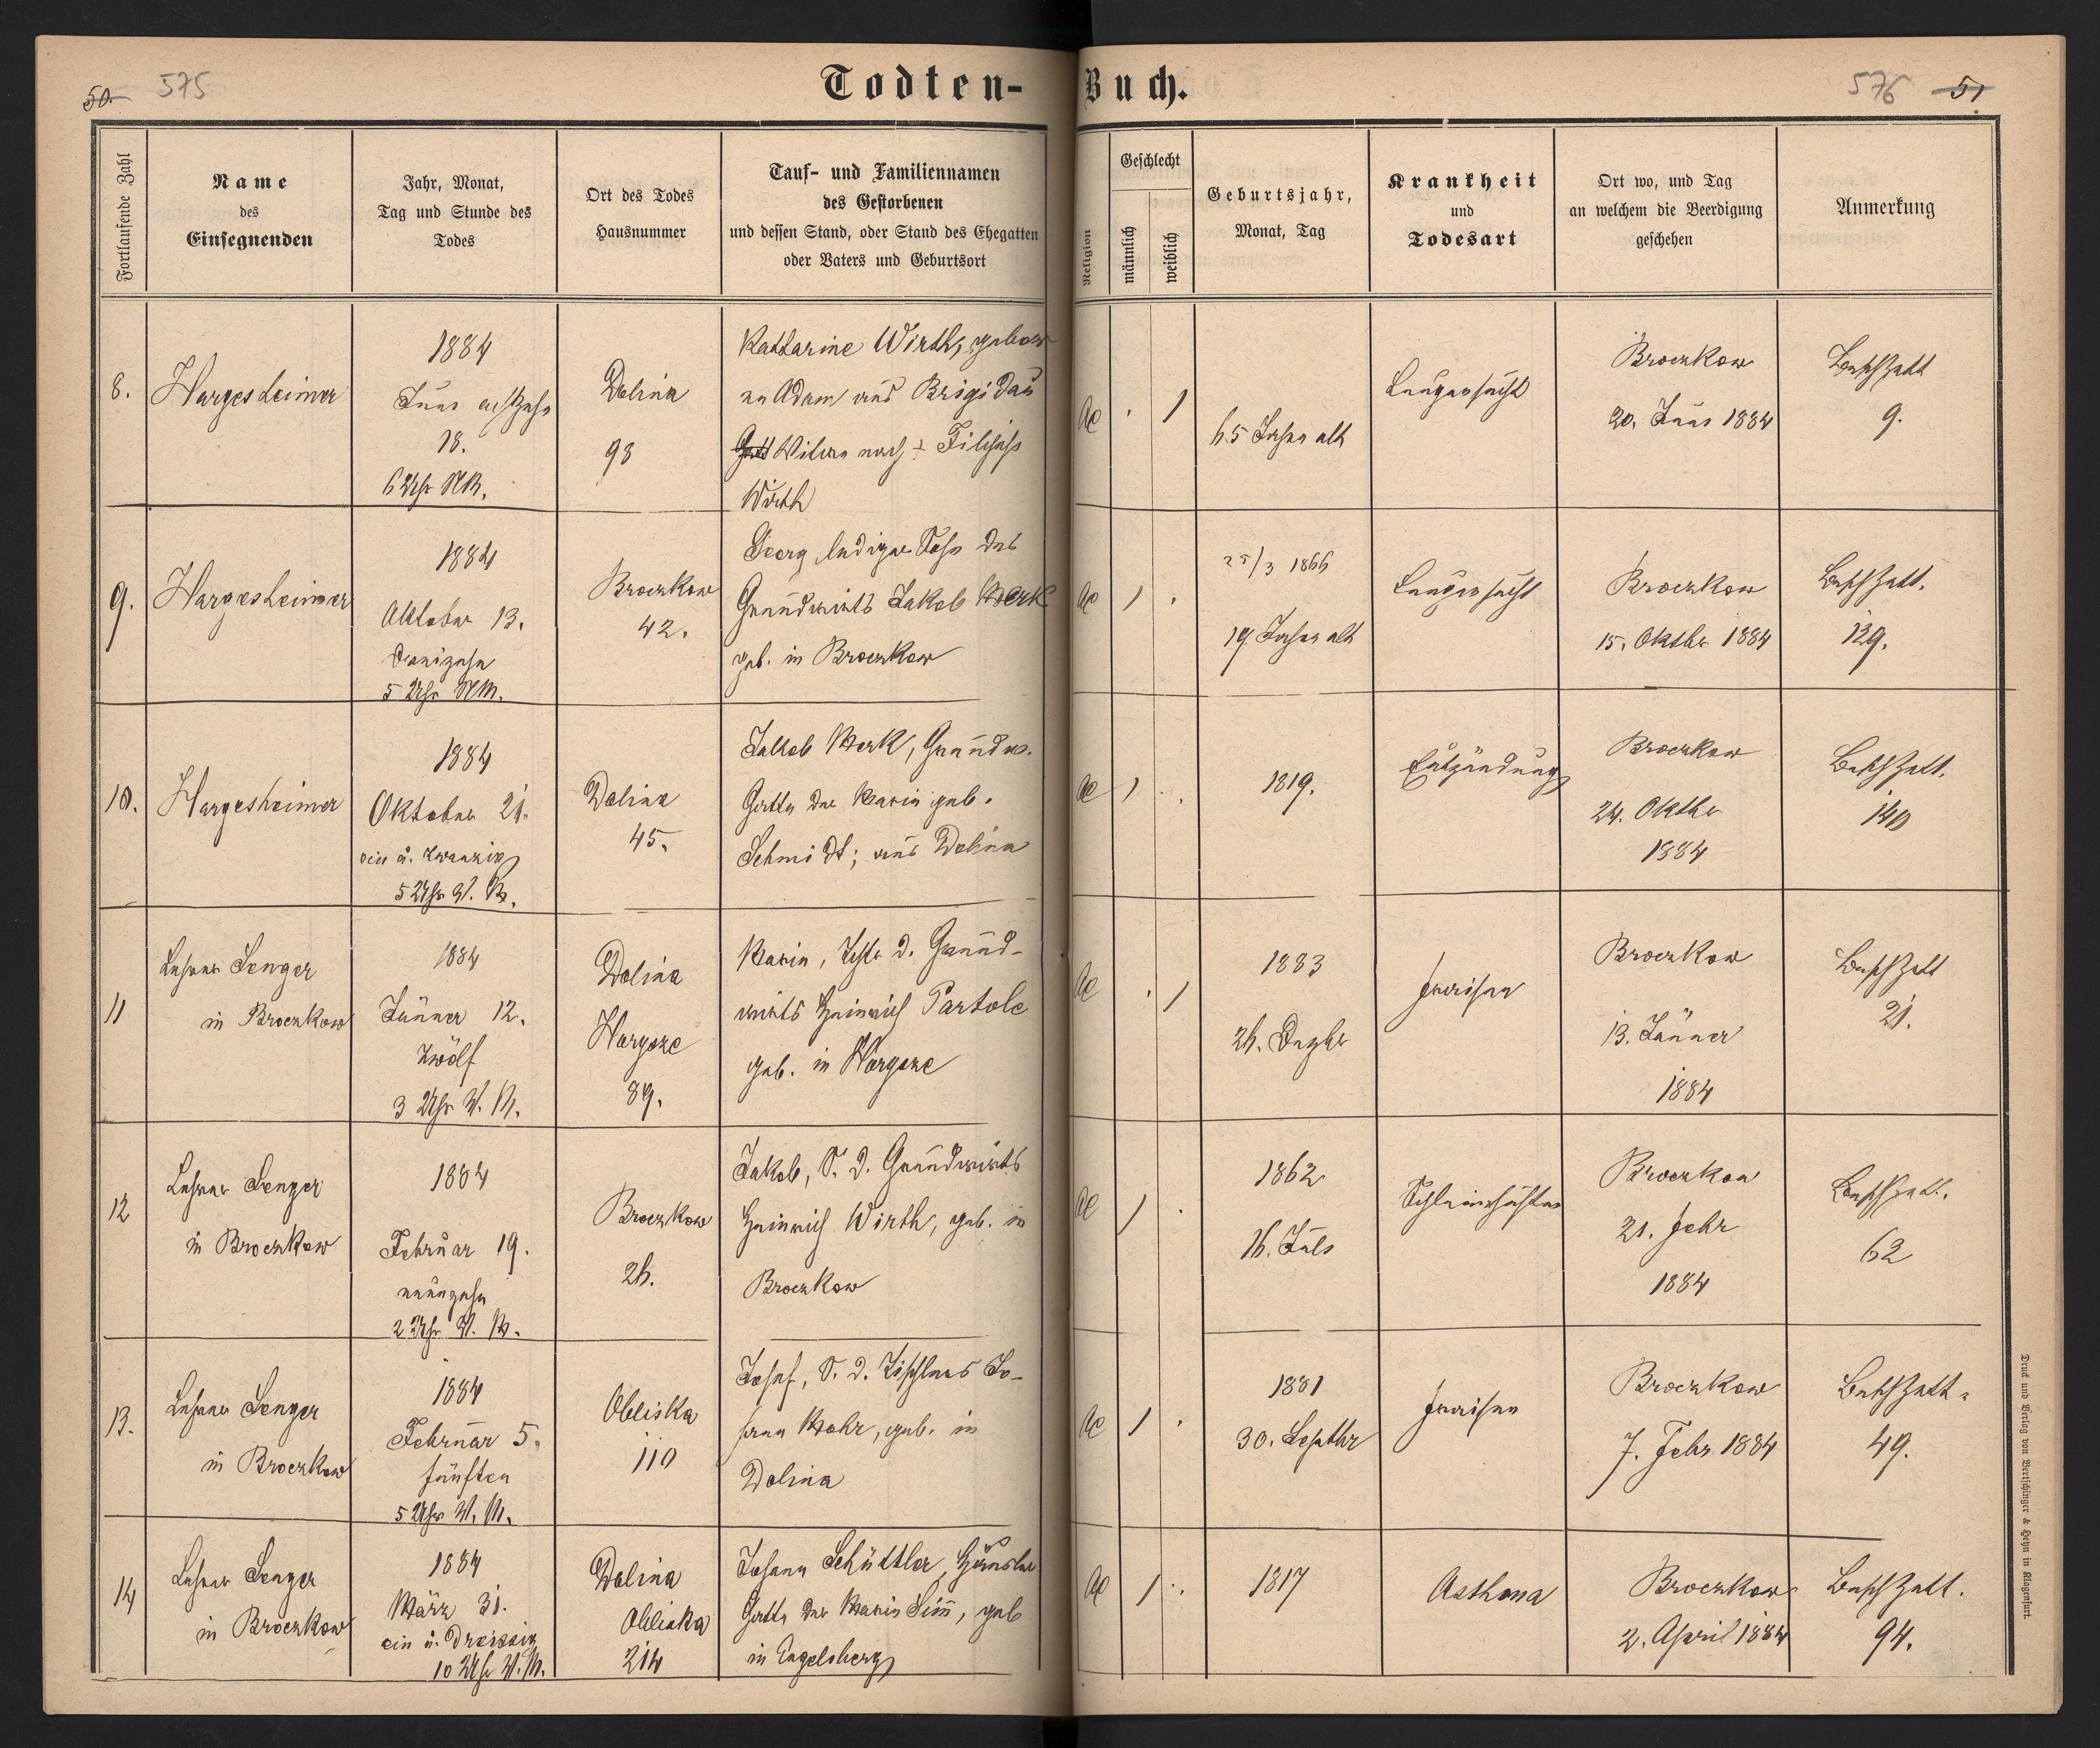 50. 575
Todten-Buch.
576 51
Fortlaufende Zahl
Name
des
Einsegnenden
Jahr, Monat,
Tag und Stunde des
Todes
Ort des Todes
Hausnummer
Tauf- und Familiennamen
des Gestorbenen
und dessen Stand, oder Stand des Ehegatten
oder Vaters und Geburtsort
Religion
Geschlecht
männlich
weiblich
Geburtsjahr,
Monat, Tag
Krankheit
und
Todesart
Ort wo, und Tag
an welchem die Beerdigung
geschehen
Anmerkung
8.
Hargesheimer
1884
Juni achtzehn
18.
6 Uhr NM.
Dolina
98
Katharine Wirth, gebore
ne Adam aus Brigidau
Witwe nach + Filipp
Wirth
AC
1
65 Jahre alt
Lungensucht
Broczkow
20. Juni 1884
Beschzett
9.
9.
Hargesheimer
1884
Oktober 13.
dreizehn
5 Uhr NM.
Broczkow
42.
Georg lediger Sohn des
Grundwirts Jakob Merk
geb. in Broczkow
AC
1
25/3 1866
19 Jahre alt
Lungensucht
Broczkow
15. Oktbr 1884
Beschzett.
139.
10.
Hargesheimer
1884
Oktober 21.
ein u. zwanzig
5 Uhr V. M.
Dolina
45.
Jakob Merk, Grundw.
Gatte der Maria geb.
Schmidt; aus Dolina
AC
1
1819.
Entzündung
Broczkow
24. Oktbr
1884
Beschzett.
140
11
Lehrer Senger
in Broczkow
1884
Jänner 12.
zwölf
3 Uhr V. M.
Dolina
Wargoze
89.
Maria, Tchtr d. Grund-
wirts Heinrich Partole
geb. in Wargoze
AC
1
1883
26. Dezbr
Fraisen
Broczkow
13. Jänner
1884
Beschzett
21.
12
Lehrer Senger
in Broczkow
1884
Februar 19.
neunzehn
2 Uhr V. M.
Broczkow
26.
Jakob, S. d. Grundwirts
Heinrich Wirth, geb. in
Broczkow
AC
1
1862
16. Juli
Broczkow
21. Febr
1884
Beschzett.
62
13.
Lehrer Senger
in Broczkow
1884
Februar 5.
fünften
5 Uhr V. M.
Obliska
110
Josef, S. d. Tischlers Jo-
hann Mohr, geb. in
Dolina
AC
1
1881
30. Septbr
Fraisen
Broczkow
7. Febr 1884
Beschzett.
49.
14
Lehrer Senger
in Broczkow
1884
März 31.
ein u. dreissig
10 Uhr V. M.
Dolina
Obliska
214
Johann Schüttler, Häusler
Gatte der Maria Sim̄, geb
in Engelsberg
AC
1
1817
Asthma
Broczkow
2. April 1884
Beschzett.
94.
Druck und Verlag von Bertschinger & Heyn in Klagenfurt.